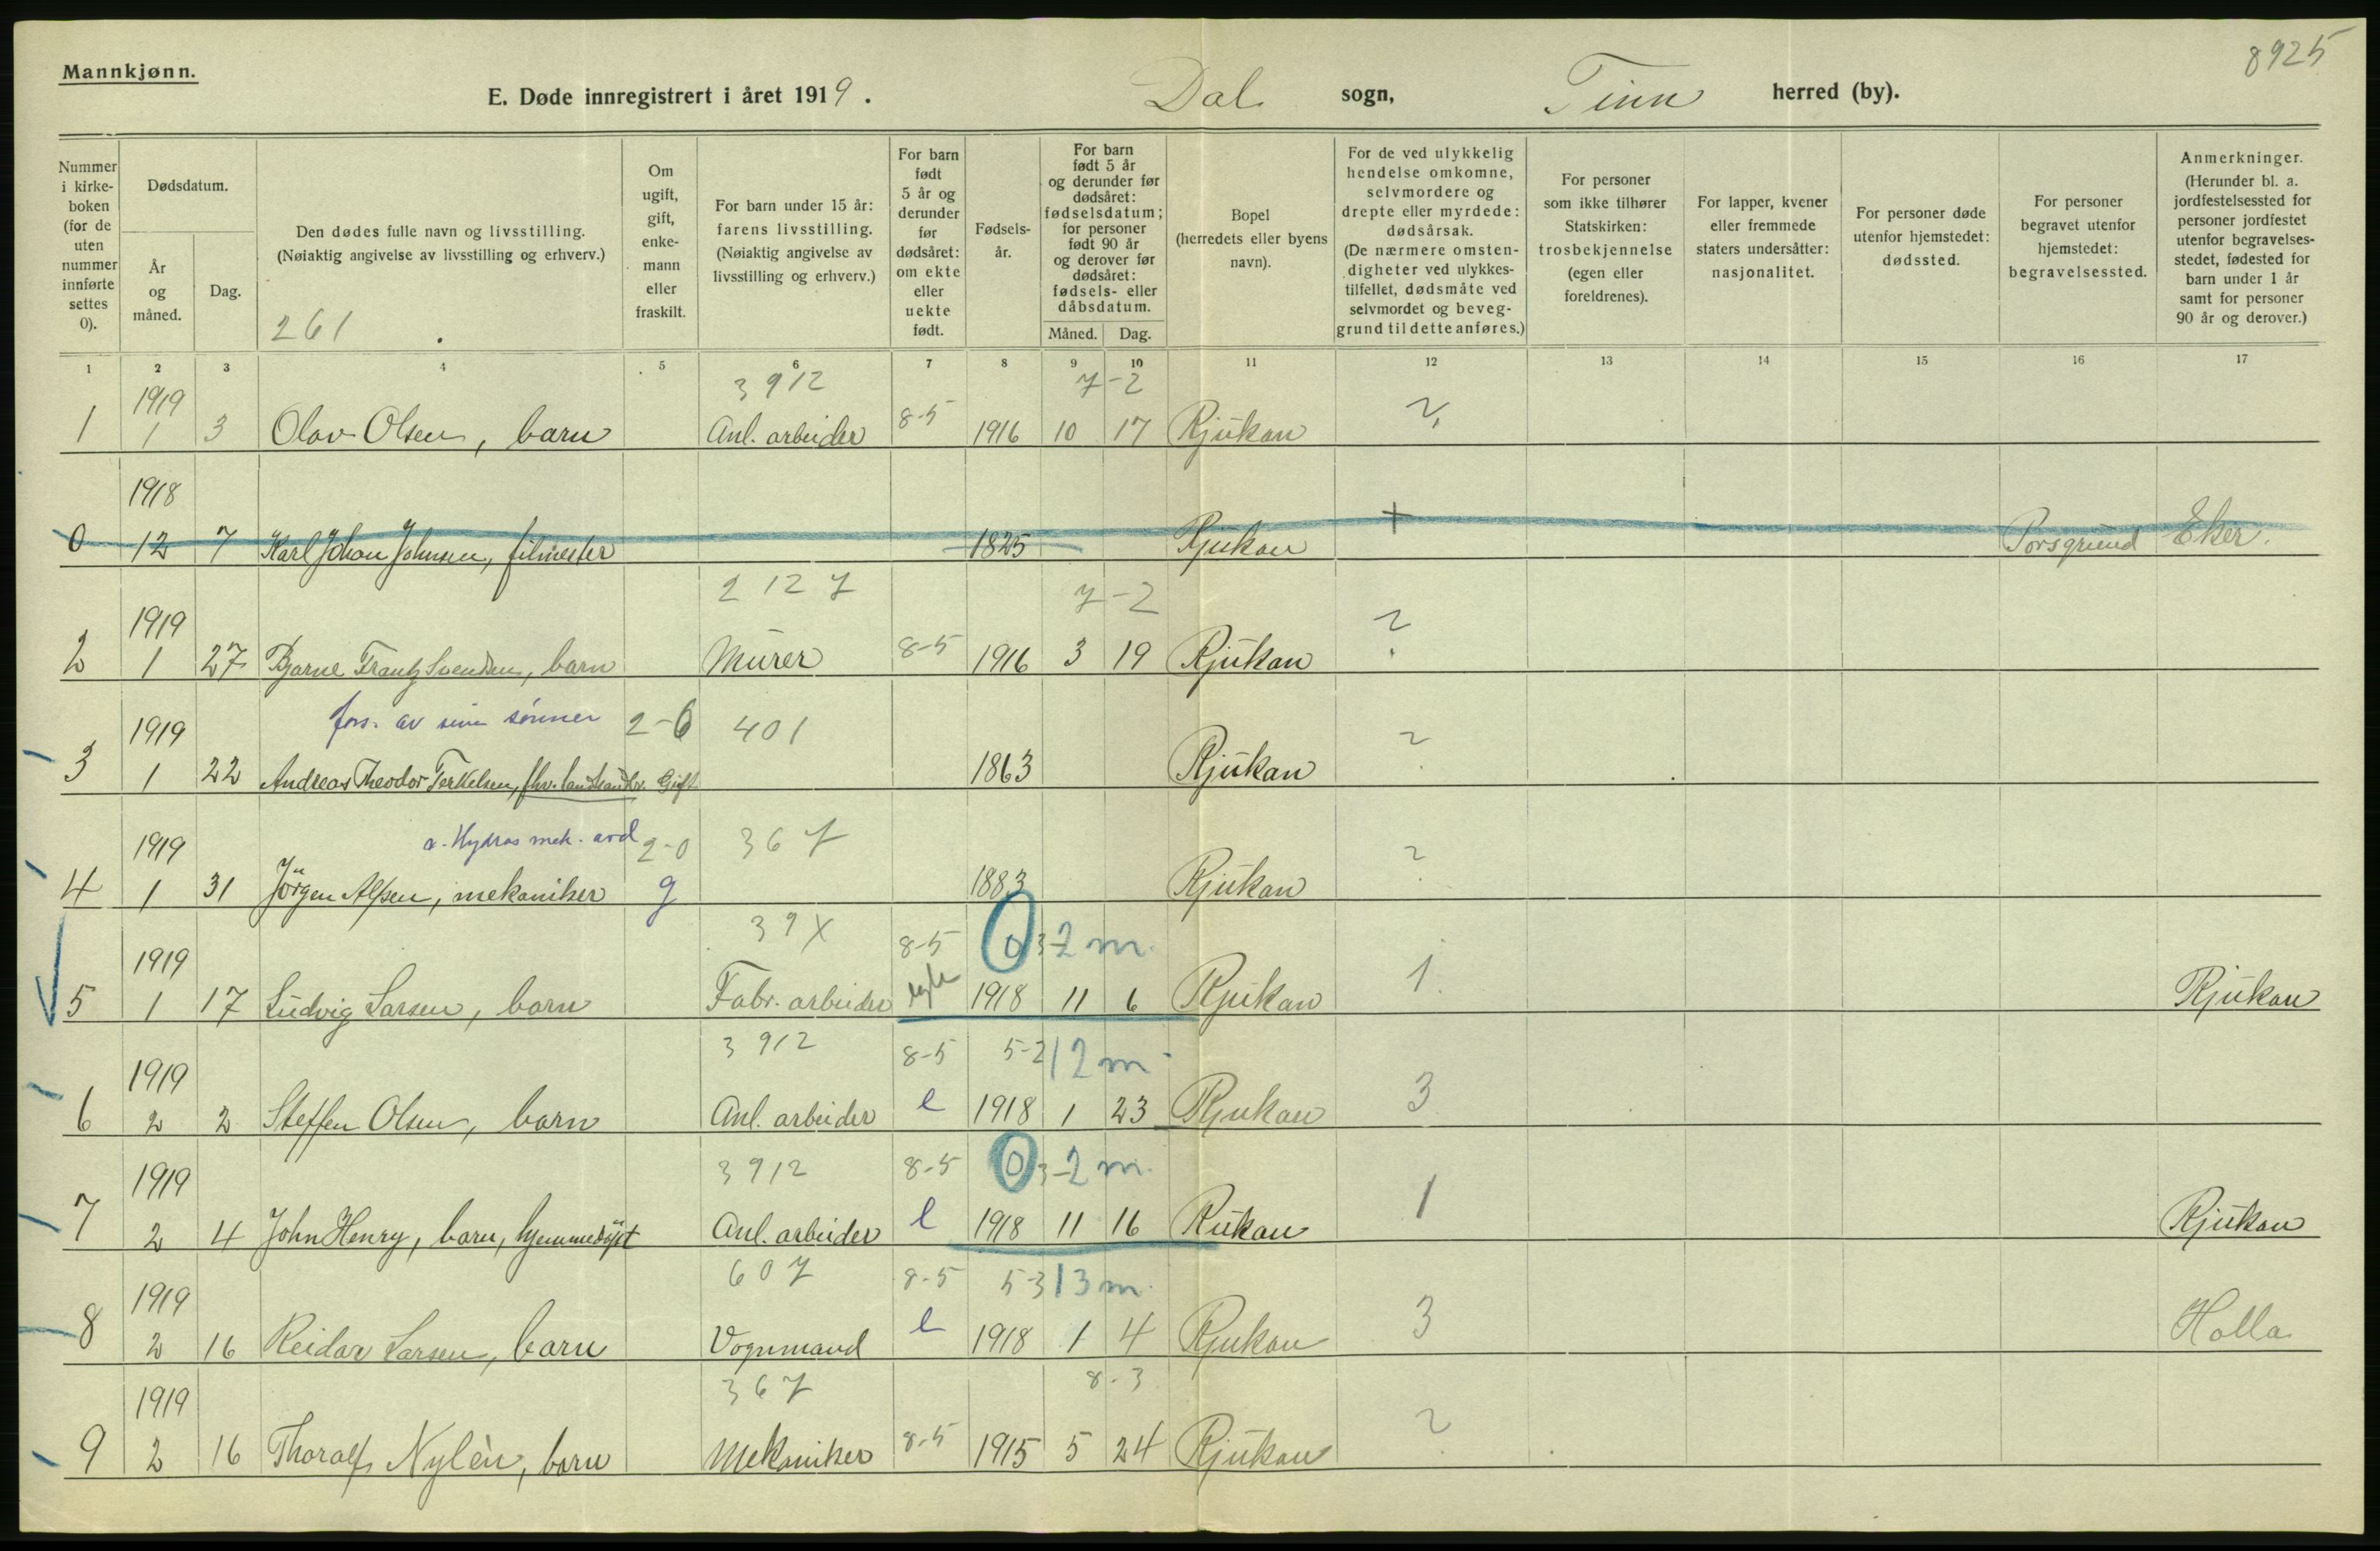 8925
Mannkjønn.
E. Døde innregistrert i året 1919. Dal sogn, Tinn herred (by).
Nummer i kirke-boken (for de uten nummer innførte settes 0).
Dødsdatum.
År og måned.
Dag.
Den dødes fulle navn og livsstilling.
(Nøiaktig angivelse av livsstilling og erhverv.)
261
Om ugift, gift, enke-mann eller fraskilt.
For barn under 15 år: farens livsstilling. (Nøiaktig angivelse av livsstilling og erhverv.)
For barn født 5 år og derunder før dødsåret: om ekte eller uekte født.
Fødsels-år.
For barn født 5 år og derunder før dødsåret: fødselsdatum; for personer født 90 år og derover før dødsåret: fødsels- eller dåbsdatum.
Måned. Dag.
Bopel (herredets eller byens navn).
For de ved ulykkelig hendelse omkomne, selvmordere og drepte eller myrdede: dødsårsak. (De nærmere omsten-digheter ved ulykkes-tilfellet, dødsmåte ved selvmordet og beveg-grund til dette anføres.)
For personer som ikke tilhører Statskirken: trosbekjennelse (egen eller foreldrenes).
For lapper, kvener eller fremmede staters undersåtter: nasjonalitet.
For personer døde utenfor hjemstedet: dødssted.
For personer begravet utenfor hjemstedet: begravelsessted.
Anmerkninger. (Herunder bl. a. jordfestelsessted for personer jordfestet utenfor begravelses-stedet, fødested for barn under 1 år samt for personer 90 år og derover.)
1 2 3 4 5 6 7 8 9 10 11 12 13 14 15 16 17
1919 3912 7-2
1 1 3 Olav Olsen, barn Anl. arbeider 8-5 1916 10 17 Rjukan ?
1918
0 12 7 Karl Johan Johnsen, filmester 1825 Rjukan + Porsgrund Eker.
1919 2127 7-2
2 1 27 Bjarne Frantz Svendsen, barn Murer 8-5 1916 3 19 Rjukan ?
1919 fors. av sine sønner 2-6 401
3 1 22 Andreas Theodor Terkelsen, fhv. landhandler. Gift 1863 Rjukan ?
1919 a. Hydros mek. avd 2-0 367
4 1 31 Jörgen Alfsen, mekaniker g 1883 Rjukan ?
1919 39X 8-5 0 3-2 m.
5 1 17 Ludvig Larsen, barn Fabr. arbeider 1918 11 6 Rjukan 1. Rjukan
1919 3912 8-5 5-2 12 m.
6 2 2 Steffen Olsen, barn Anl. arbeider e 1918 1 23 Rjukan 3
1919 3912 8-5 0 3-2 m.
7 2 4 John Henry, barn, hjemmedöpt Anl. arbeider e 1918 11 16 Rukan 1 Rjukan
1919 607 8-5 5-3 13 m.
8 2 16 Reidar Larsen, barn Vognmand e 1918 1 4 Rjukan 3 Holla
1919 367 8-3
9 2 16 Thoralf Nylèn, barn Mekaniker 8-5 1915 5 24 Rjukan ?